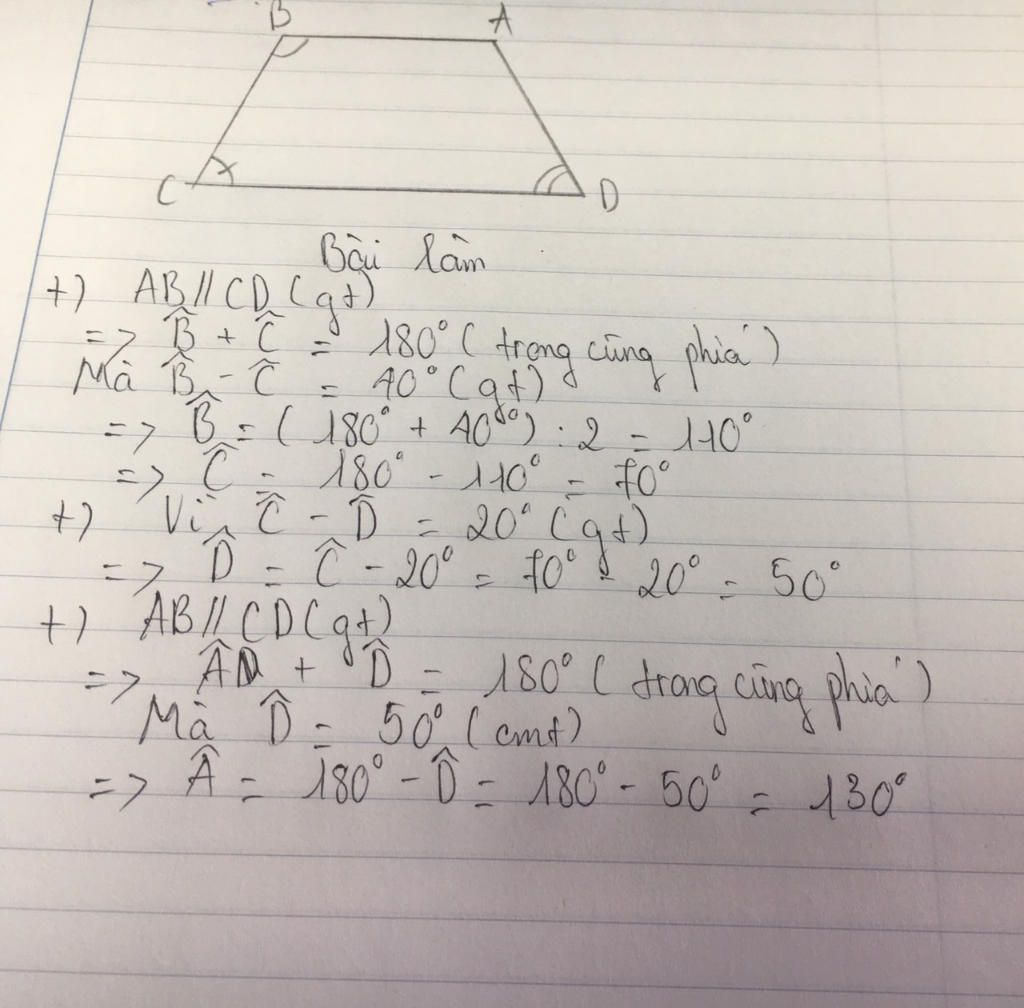 B A
C D
Bài làm
+) AB // CD (gt)
=> B̂ + Ĉ = 180° (trong cùng phía)
Mà B̂ - Ĉ = 40° (gt)
=> B̂ = (180° + 40°) : 2 = 110°
=> Ĉ = 180° - 110° = 70°
+) Vì Ĉ - D̂ = 20° (gt)
=> D̂ = Ĉ - 20° = 70° - 20° = 50°
+) AB // CD (gt)
=> Â + D̂ = 180° (trong cùng phía)
Mà D̂ = 50° (cmt)
=> Â = 180° - D̂ = 180° - 50° = 130°